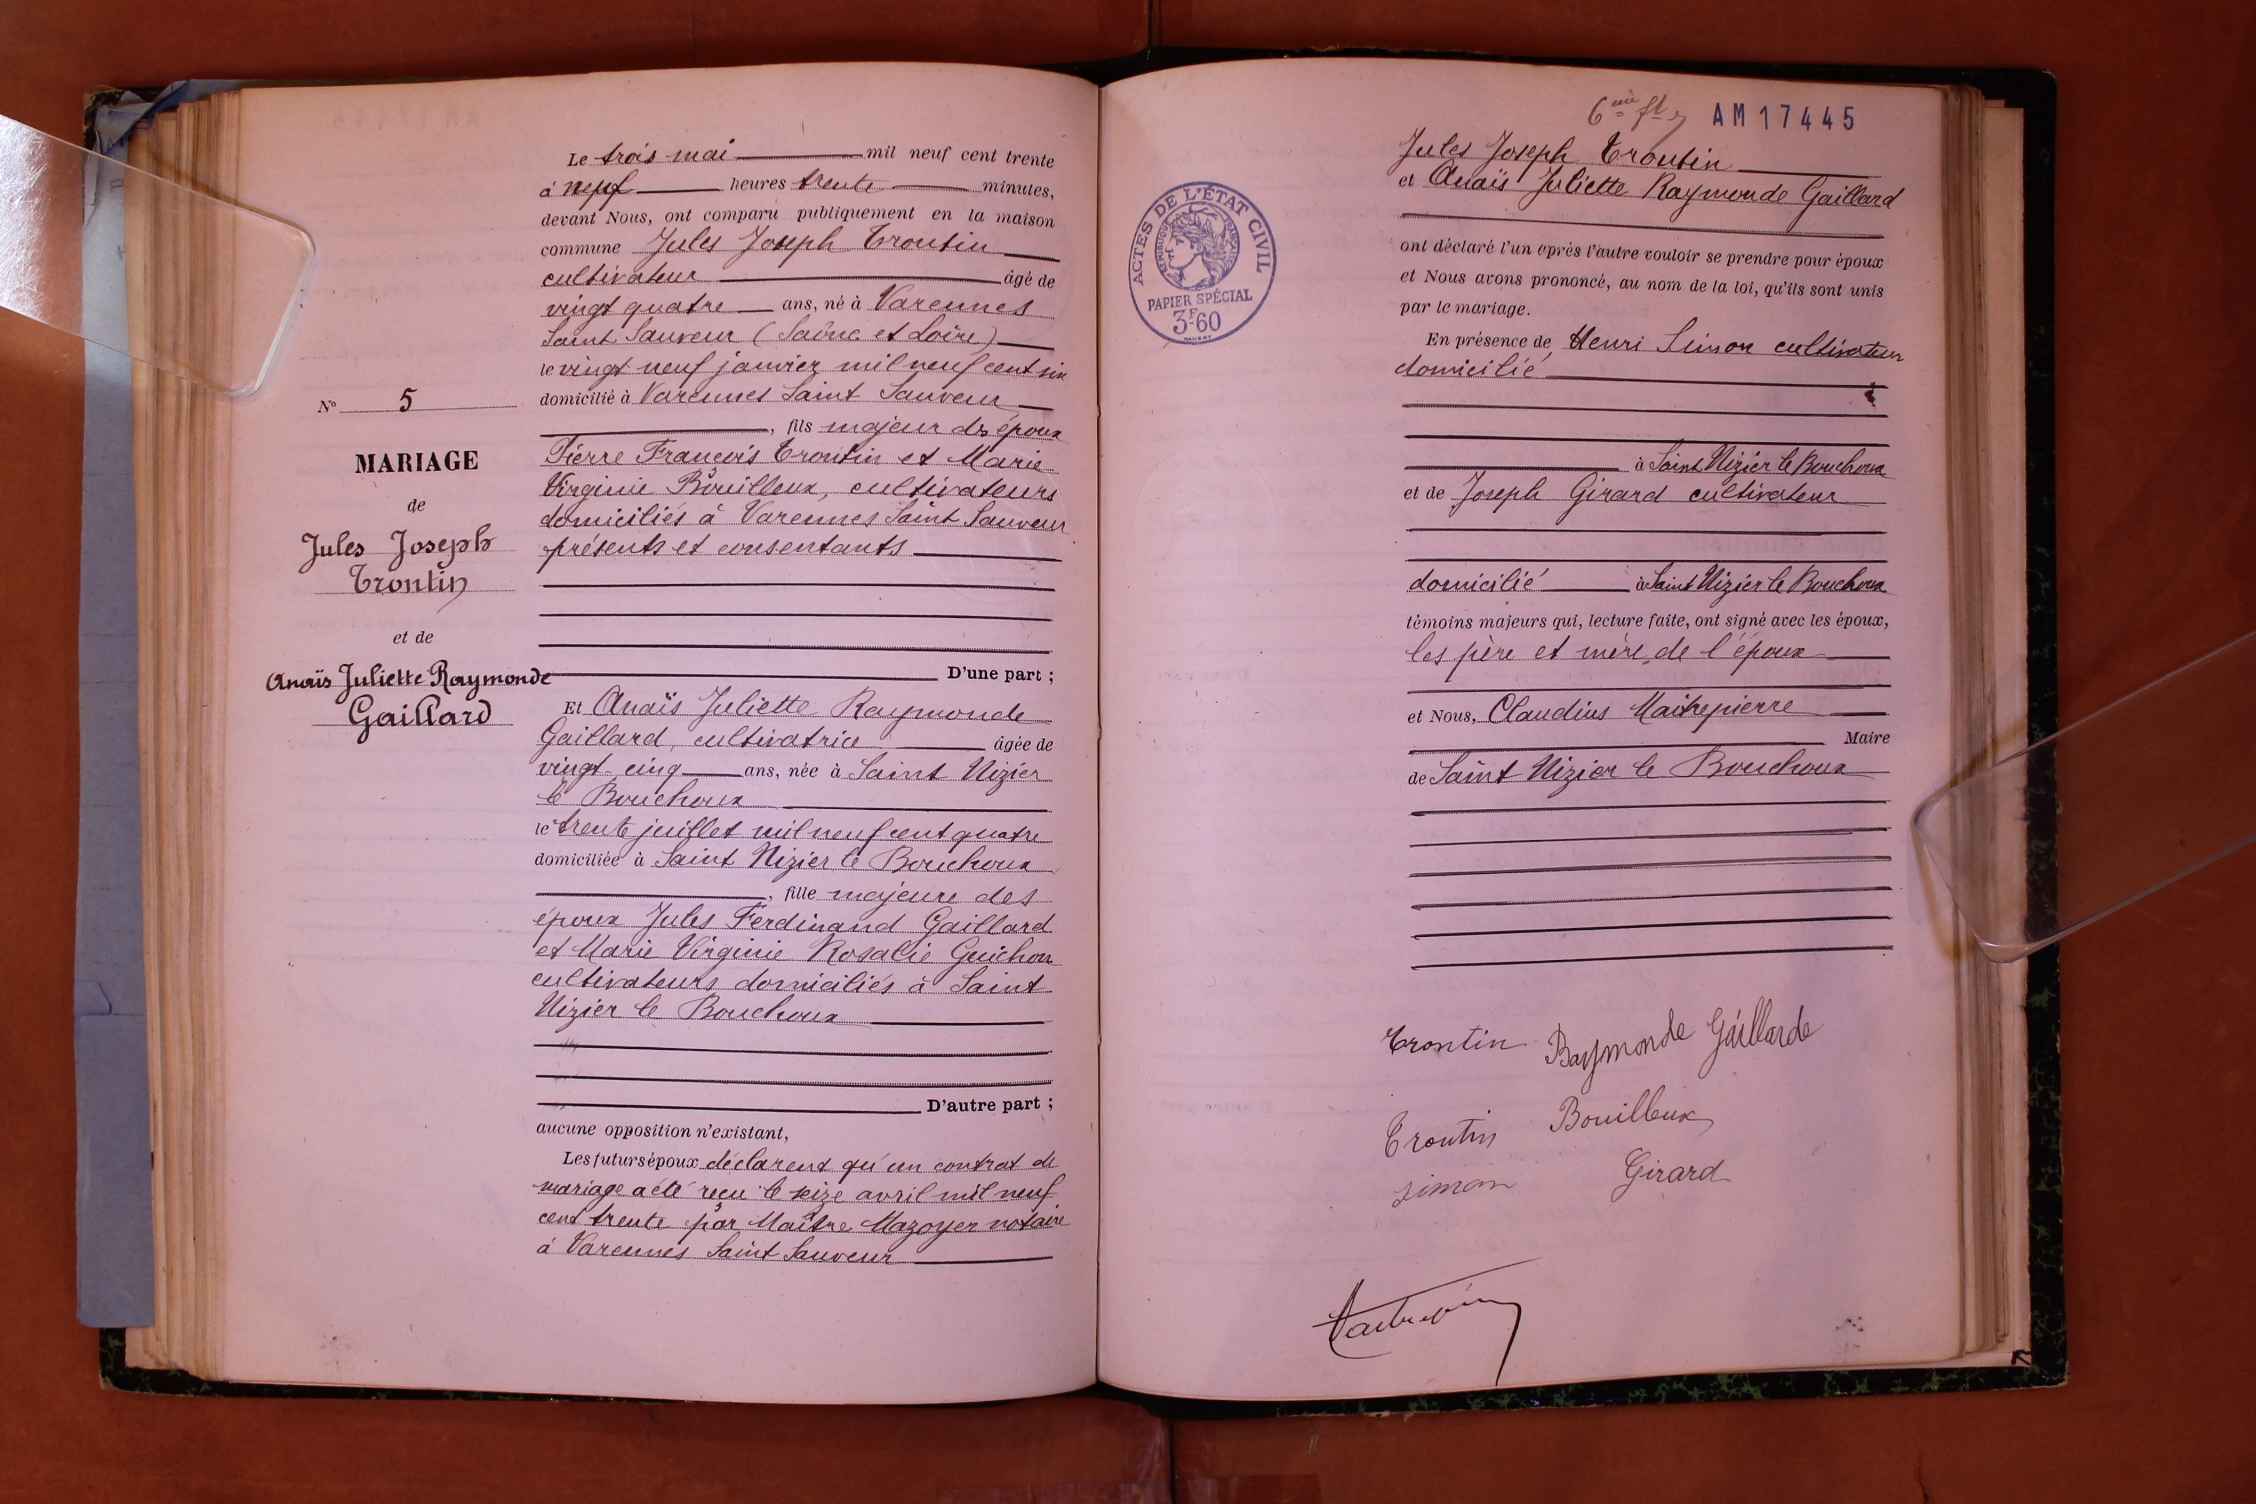 N° 5
MARIAGE
de
Jules Joseph
Trontin
et de
Anaïs Juliette Raymonde
Gaillard
Le trois mai mil neuf cent trente
à neuf heures trente minutes,
devant Nous, ont comparu publiquement en la maison
commune Jules Joseph Trontin
cultivateur âgé de
vingt quatre ans, né à Varennes
Saint Sauveur (Saône et Loire)
le vingt neuf janvier mil neuf cent six
domicilié à Varennes Saint Sauveur
, fils majeur des époux
Pierre François Trontin et Marie
Virginie Bouilleux, cultivateurs
domiciliés à Varennes Saint Sauveur
présents et consentants
D'une part ;
Et Anaïs Juliette Raymonde
Gaillard, cultivatrice âgée de
vingt-cinq ans, née à Saint Nizier
le Bouchoux
le trente juillet mil neuf cent quatre
domiciliée à Saint Nizier le Bouchoux
, fille majeure des
époux Jules Ferdinand Gaillard
et Marie Virginie Rosalie Guichon
cultivateurs domiciliés à Saint
Nizier le Bouchoux
D'autre part ;
aucune opposition n'existant,
Les futurs époux déclarent qu'un contrat de
mariage a été reçu le seize avril mil neuf
cent trente par Maître Mazoyer notaire
à Varennes Saint Sauveur
AM17445
ACTES DE L'ÉTAT CIVIL
RÉPUBLIQUE FRANÇAISE
PAPIER SPÉCIAL
3F60
Jules Joseph Trontin
et Anaïs Juliette Raymonde Gaillard
ont déclaré l'un après l'autre vouloir se prendre pour époux
et Nous avons prononcé, au nom de la loi, qu'ils sont unis
par le mariage.
En présence de Henri Simon cultivateur
domicilié
à Saint Nizier le Bouchoux
et de Joseph Girard cultivateur
domicilié à Saint Nizier le Bouchoux
témoins majeurs qui, lecture faite, ont signé avec les époux,
les père et mère de l'époux
et Nous, Claudius Maitrepierre
Maire
de Saint Nizier le Bouchoux
Trontin Raymonde Gaillarde
Trontin Bouilleux
Simon Girard